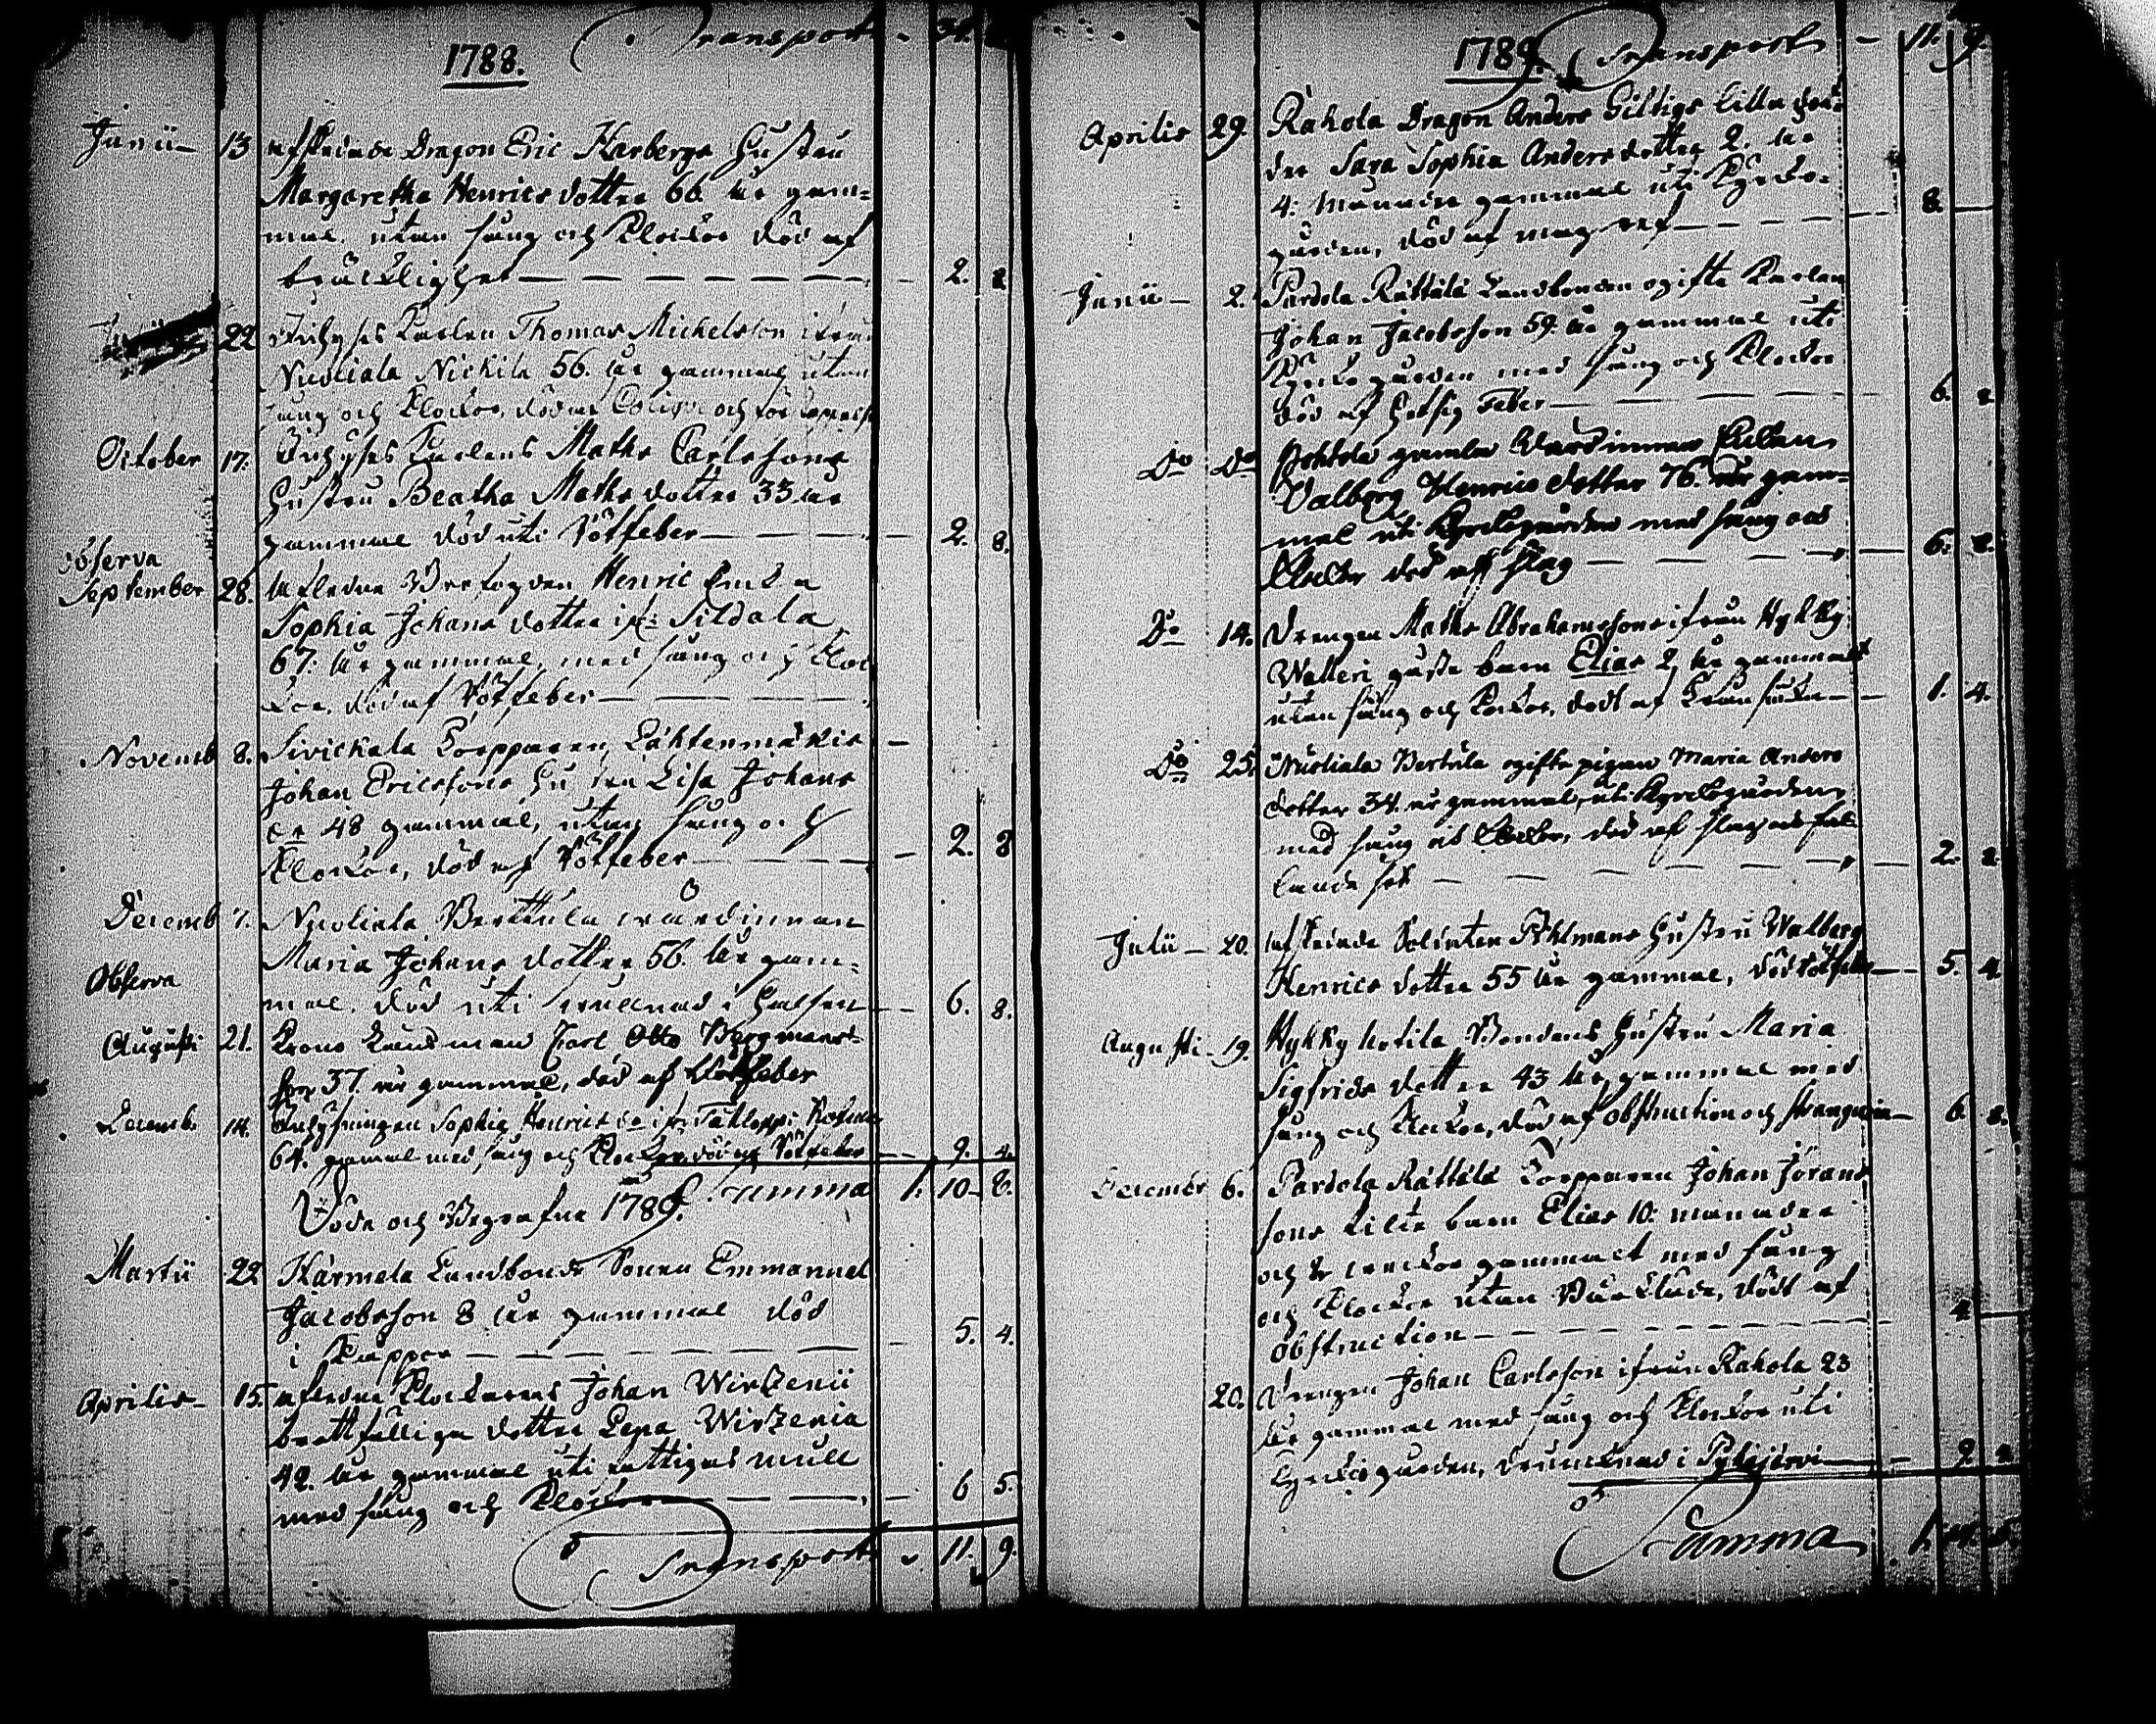 1788. Transport - 34.
Junii - 13 afskedade Dragon Eric Karbergs Hustru
Margaretha Henrics dotter 66. år gam=
mal. utan sång och Klockor död af
bräcklighet - 2. 8
22 Inhyses Karlen Thomas Michelsson ifrån
Nuoliala Nickilä 56. år gammal utan
sång och Klockor, död af Colique och
October 17. Inhyses Karlens Maths Carlssons
Hustru Beatha Maths dotter 33 år
gammal död uti Rötfeber - 2. 8.
Observa
September 28. Henric Enka
Sophia Johans dotter ifr: Sildala
67. år gammal, med sång och Kloc
kor, död af Rötfeber
Novemb 8. Sivickala Torpparen Lähtenmäkis -
Johan Ericssons Hustru Lisa Johans
48 gammal, utan sång och
Klockor, död af Rötfeber - 2. 8
Decemb 7. Nuoliala Berttula wärdinnan
Maria Johans dotter 56. år gam=
Observa
mal. död uti swullnad i Halsen - 6. 8.
Augusti 21. Krono Länsman Carl Otto Bergman
37. år gammal, död af Rötfeber
Decemb. 14. Sophia Henrics ifr:
64. gamal med sång och Klockor, död af Rötfeber - 9. 4.
Summa 1. 10. 8.
Döde och Begrafne 1789.
Martii 22 Kärmela Landbonde Sonen Emmanuel
Jacobsson 8 år gammal död
i Koppor - 5. 4.
Aprilis - 15. afledne Klockarens Johan Wirzenii
bråttfälliga dotter Lena Wirzenia
42. år gammal uti fattigas mull
med sång och Klockor - 6 5.
Transport 11. 9.
1789. Transport - 11. 9.
Aprilis 29. Rahola Dragon Anders Giltigs lilla dot=
ter Sara Sophia Anders dotter 2. år
4: månader gammal uti Kyrko=
gården, död af mag ref - 8. -
Junii - 2. Pardola Rättälä Landbonden ogifte Karlen
Johan Jacobsson 59. år gammal uti
Kyrkogården med sång och Klockor
död af hetsig Feber - 6. 8
Do Do Pohtola gamla Wärdinnan Enkan
Valborg Henrics dotter 76. år gam=
mal uti Kyrkogården med sång och
Klockor död af slag - 6. 8.
Do 14. Drengen Maths Abrahamssons ifrån Hykky
Walleri barn Elias 2 år gammalt
utan sång och Klockor, dödt af - 1. 4.
Do 25. Nuoliala Bertula ogifta pigan Maria Anders
dotter 34. år gammal, uti Kyrkogården
med sång och Klockor, död af slag och fal=
lande sot - 2. 8.
Julii - 20. afskedade Soldaten Pihlmans Hustru Walborg
Henrics dotter 55 år gammal, död rötfeber - 5. 4.
Augusti - 19. Hykky Bondens Hustru Maria
Sigfrids dotter 43 år gammal med
sång och Klockor, död af obstruction och stranguria - 6 8.
December 6. Pardola Rättälä Torpparen Johan Jörans
sons lilla barn Elias 10: månader
och veckor gammalt med sång
och Klockor utan Bårkläde, dödt af
obstruction - 4
20. Drengen Johan Carlsson ifrån Rahola 23
år gammal med sång och Klockor uti
Kyrkogården, drunknad i Pyhäjärvi - 2.
Summa